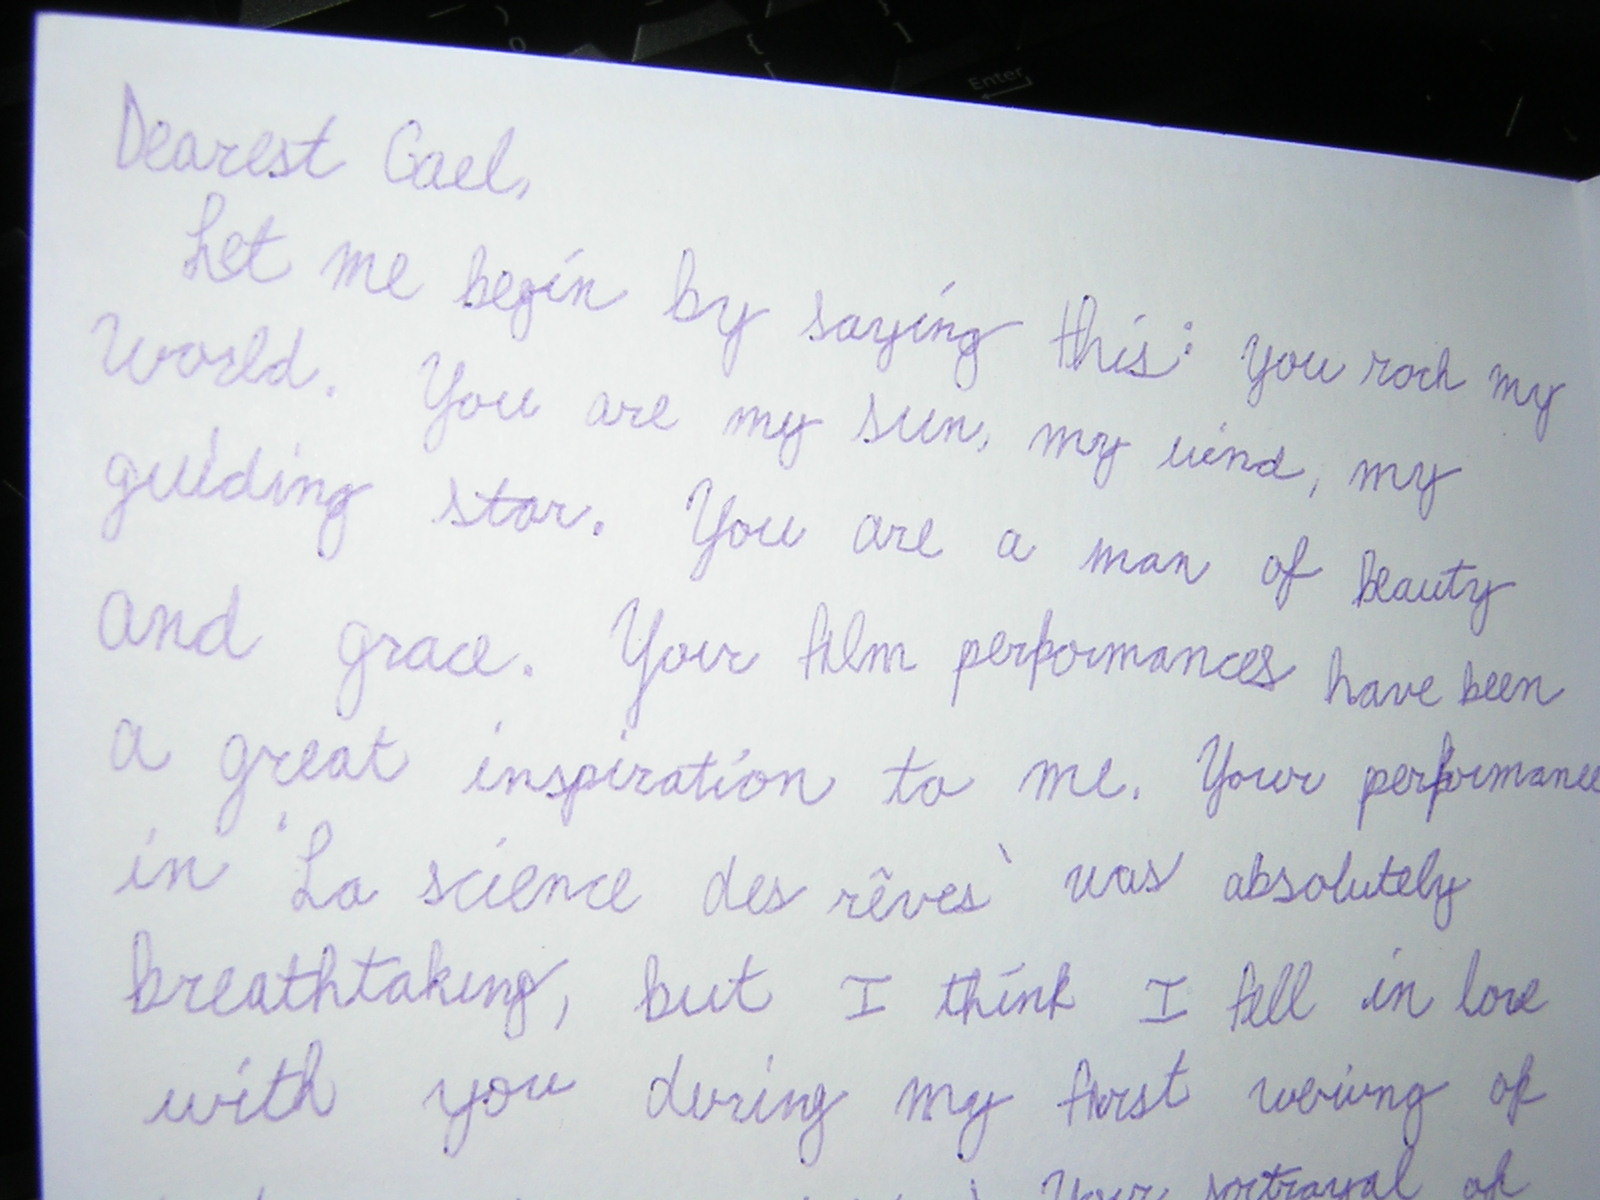 Enter
Dearest Gael,
Let me begin by saying this: You rock my
World. You are my sun, my wind, my
guiding star. You are a man of beauty
and grace. Your film performances have been
a great inspiration to me. Your performance
in 'La science des rêves' was absolutely
breathtaking, but I think I fell in love
with you during my first of
Your portrayal of